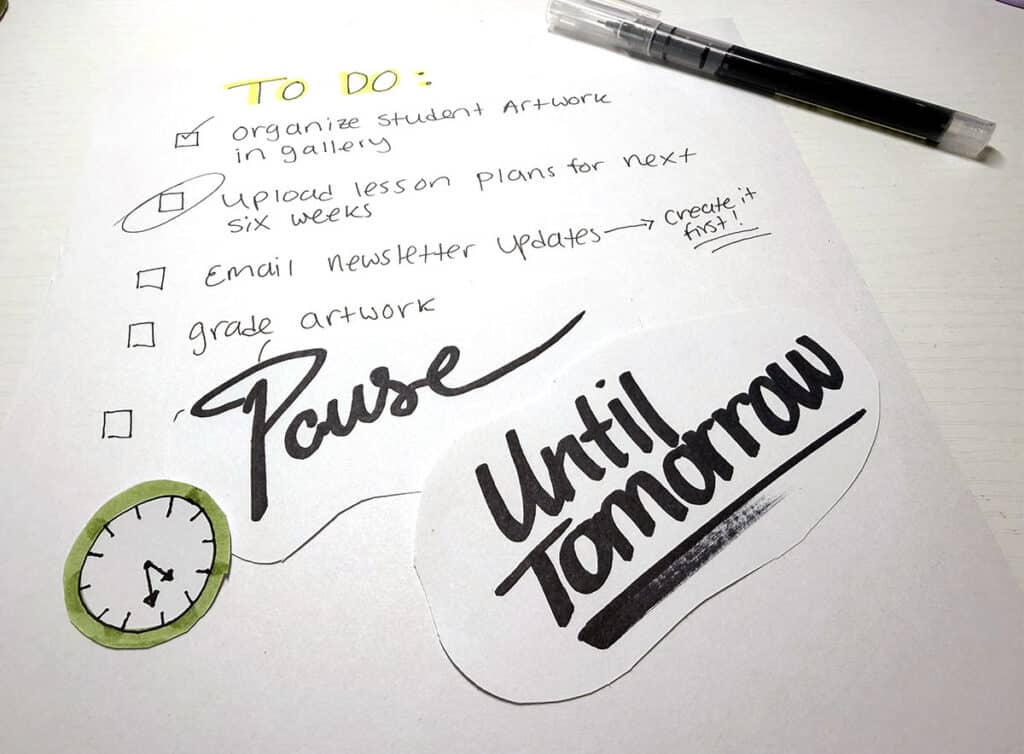 TO DO:
organize student Artwork
in gallery
Upload lesson plans for next
six weeks
Email newsletter updates → Create it
first!
grade artwork
Pause
Until
Tomorrow